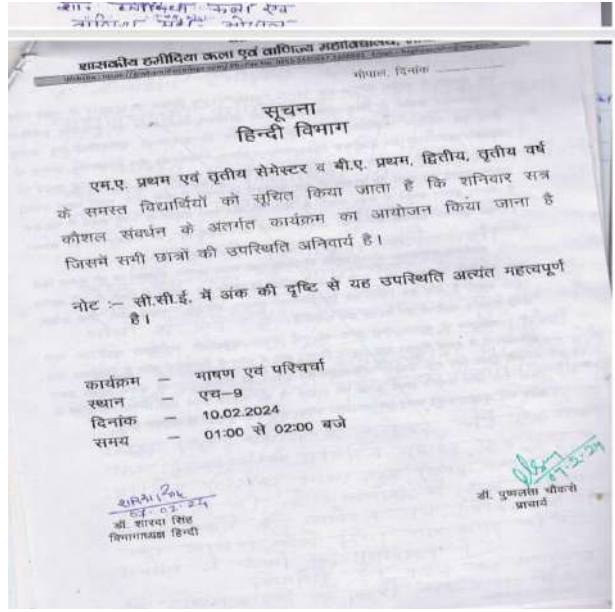 शास. हमीदिया कला एवं
वाणिज्य महा. भोपाल
शासकीय हमीदिया कला एवं वाणिज्य महाविद्यालय,
भोपाल, दिनांक
सूचना
हिन्दी विभाग
एम.ए. प्रथम एवं तृतीय सेमेस्टर व बी.ए. प्रथम, द्वितीय, तृतीय वर्ष
के समस्त विद्यार्थियों को सूचित किया जाता है कि शनिवार सत्र
कौशल संवर्धन के अंतर्गत कार्यक्रम का आयोजन किया जाना है
जिसमें सभी छात्रों की उपस्थिति अनिवार्य है।
नोट :– सी.सी.ई. में अंक की दृष्टि से यह उपस्थिति अत्यंत महत्वपूर्ण
है।
कार्यक्रम – भाषण एवं परिचर्चा
स्थान – एच–9
दिनांक – 10.02.2024
समय – 01:00 से 02:00 बजे
07.02.24
डॉ. शारदा सिंह
विभागाध्यक्ष हिन्दी
07.2.24
डॉ. पुष्पलता चौकसे
प्राचार्य